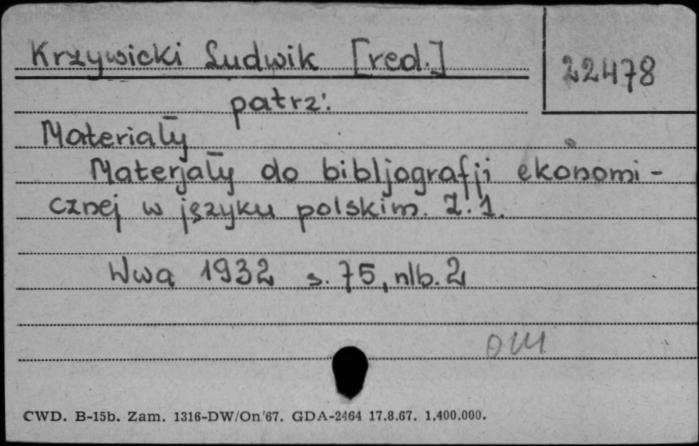 Krzywicki Ludwik [red.]
22478
patrz:
Materiały
Materjały do bibljografji ekonomi-
cznej w języku polskim. Z. 1.
Wwa 1932 s. 75, nlb. 2
CWD. B-15b. Zam. 1316-DW/On/67. GDA-2464 17.8.67. 1.400.000.